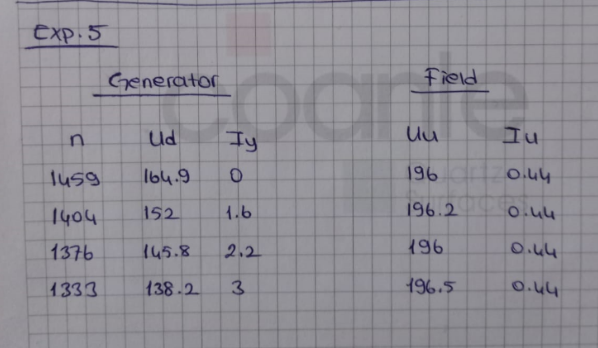 Exp. 5
Generator Field
n Ud Iy Uu Iu
1459 164.9 0 196 0.44
1404 152 1.6 196.2 0.44
1376 145.8 2.2 196 0.44
1333 138.2 3 196.5 0.44
coante